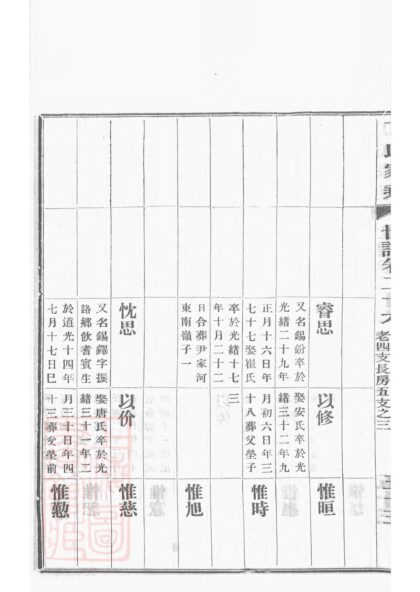 氏家乘
世譜卷二十六
老四支長房五支之三
睿思
又名錫紛卒於
光緒二十九年
正月十六日年
七十七娶崔氏
卒於光緒十七
年十月二十二
日合葬尹家河
東南嶺子一
以修
娶安氏卒於光
緒三十二年九
月初六日年三
十八葬父塋子
三
惟晅
惟時
惟旭
忱思
又名錫鐸字振
路鄉飲耆賓生
於道光十四年
七月十七日巳
以价
娶唐氏卒於光
緒三十一年二
月三十日年四
十三葬父塋前
惟慈
惟懃